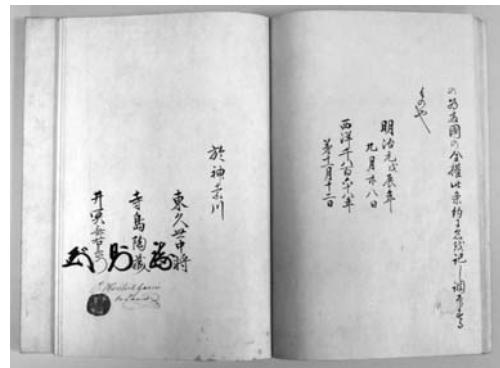 の為 國の全權此条約 記し調印する
ものや
明治元戊辰年
九月廿八日
西洋千八百六十八年
第十一月十二日
於神奈川
東久世中将
寺島陶蔵
井関